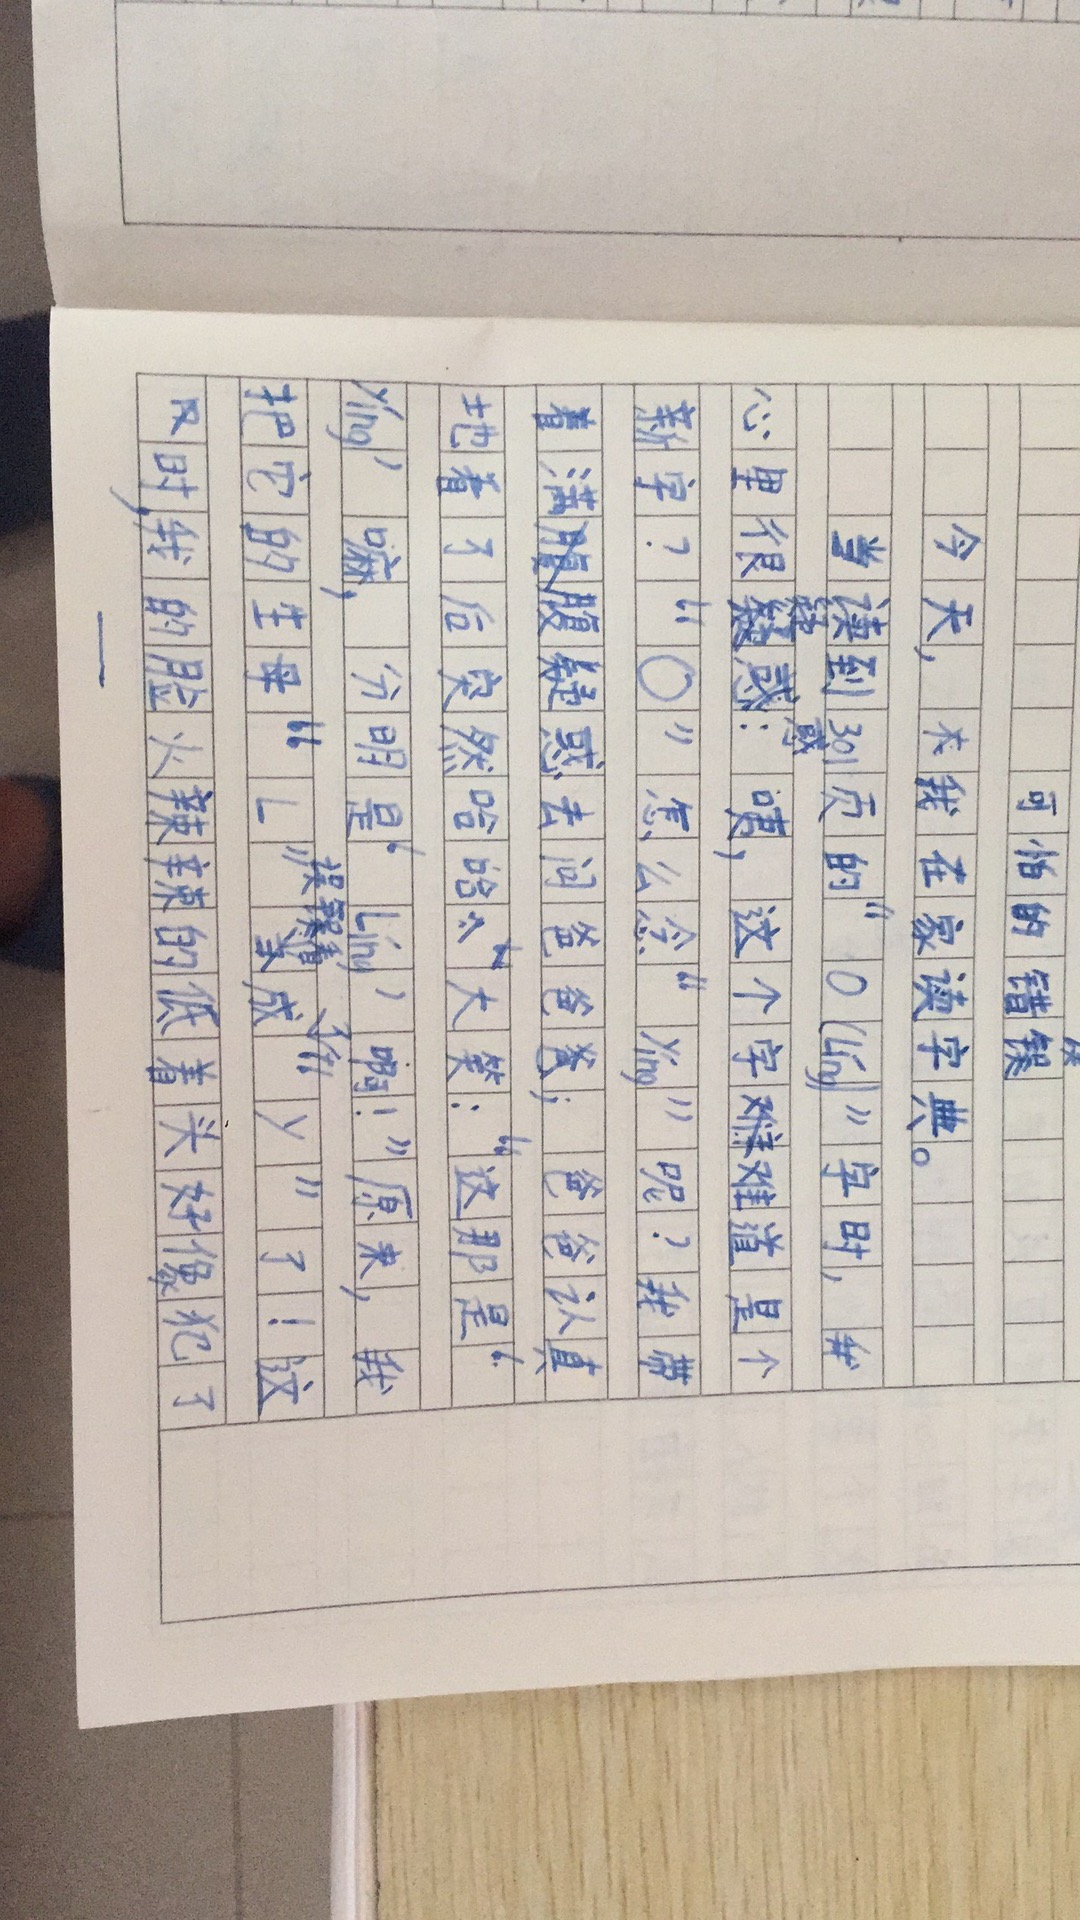 可怕的错误
今天，我在家读字典。
当读到301页的“〇(Líng)”字时，我
心里很疑惑：噢，这个字难道是个
新字？“〇”怎么念“Yíng”呢？我带
着满腹疑惑去问爸爸；爸爸认真
地看了后突然哈哈大笑：“这那是‘
Yíng’嘛，分明是‘Líng’啊！”原来，我
把它的生母“L”误看成“Y”了！这
时，我的脸火辣辣的低着头好像犯了